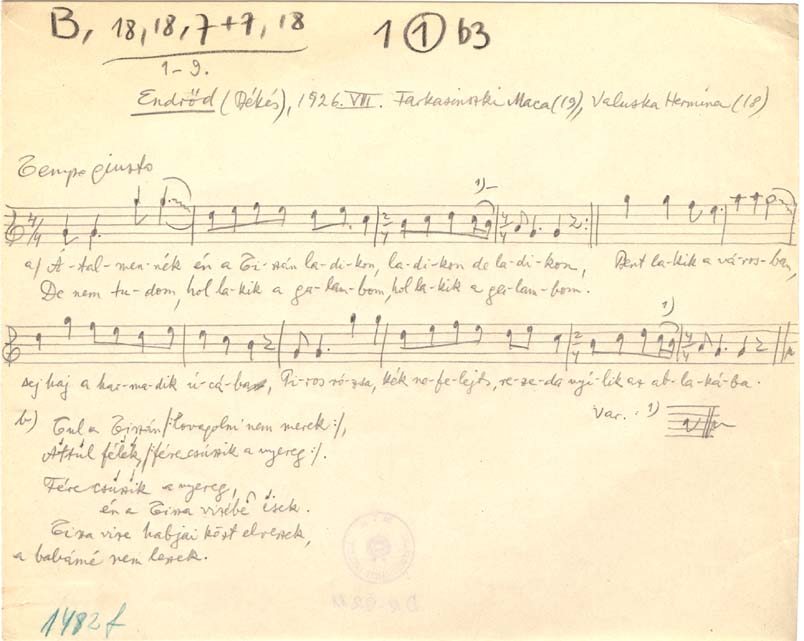 B, 18, 18, 7+7, 18 1 ① b3
1-9.
Endrőd (Békés), 1926. VIII. Farkasinszki Maca (19), Valuska Hermina (18)
Tempo giusto
1)
4/4 2/4 4/4
a/ Á-tal-men-nék én a Ti-szán la-di-kon, la-di-kon de la-di-kon, Bent la-kik a vá-ros-ban,
De nem tu-dom, hol la-kik a ga-lam-bom, hol la-kik a ga-lam-bom.
1)
2/4 4/4
sej haj a har-ma-dik u-cá-ba, Pi-ros ró-zsa, kék ne-fe-lejts, re-ze-da nyí-lik az ab-la-ká-ba.
Var. : 1)
b) Tul a Tiszán /: lovagolni nem merek :/,
Attúl félek, /: fére csúszik a nyereg :/.
Fére csúszik a nyereg,
én a Tisza vizébe esek.
Tisza vize habjai közt elveszek,
a babámé nem leszek.
1482f